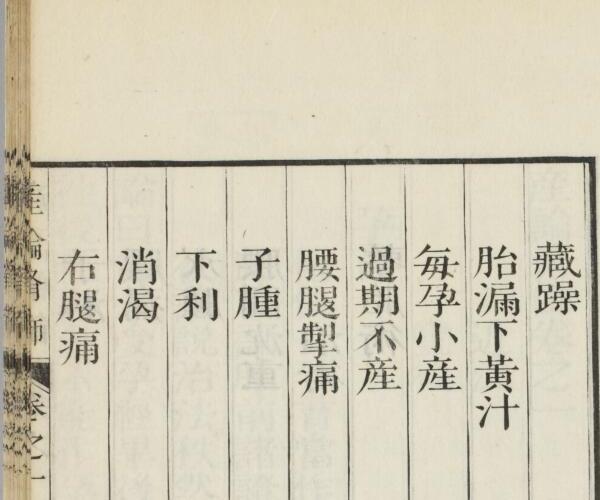 藏躁
胎漏下黃汁
每孕小產
過期不產
腰腿掣痛
子腫
下利
消渴
右腿痛
產論翼師
卷之一